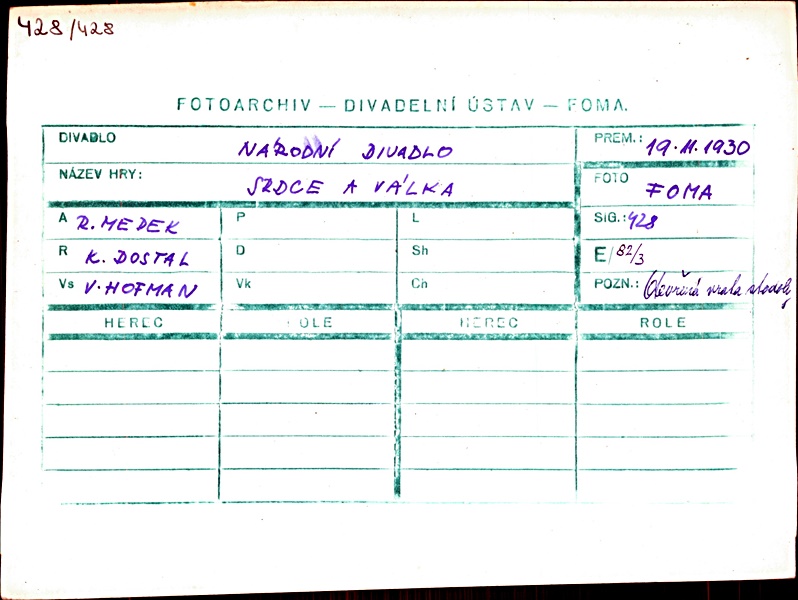 428/428
FOTOARCHIV — DIVADELNÍ ÚSTAV — FOMA.
DIVADLO NÁRODNÍ DIVADLO PREM.: 19.11.1930
NÁZEV HRY: SRDCE A VÁLKA FOTO FOMA
A R. MEDEK P L SIG.: 428
R K. DOSTAL D Sh E/82/3
Vs V. HOFMAN Vk Ch POZN.: Otevřená vrata stodoly
HEREC ROLE HEREC ROLE